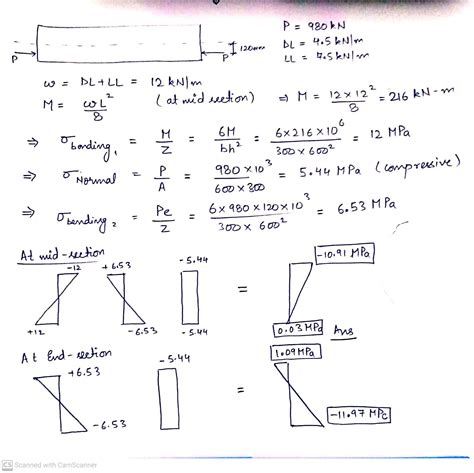 P = 980 kN
DL = 4.5 kN/m
LL = 7.5 kN/m
P P 120mm
w = DL + LL = 12 kN/m
M = wL²/8 (at mid section) ⇒ M = 12 × 12²/8 = 216 kN-m
⇒ σbending₁ = M/Z = 6M/bh² = 6×216×10⁶/300×600² = 12 MPa
⇒ σNormal = P/A = 980×10³/600×300 = 5.44 MPa (compressive)
⇒ σbending₂ = Pe/Z = 6×980×120×10³/300×600² = 6.53 MPa
At mid-section
-12 +6.53 -5.44 -10.91 MPa
=
+12 -6.53 -5.44 0.03 MPa Ans
At End-section
+6.53 -5.44 1.09 MPa
=
-6.53 -11.97 MPa
CS Scanned with CamScanner